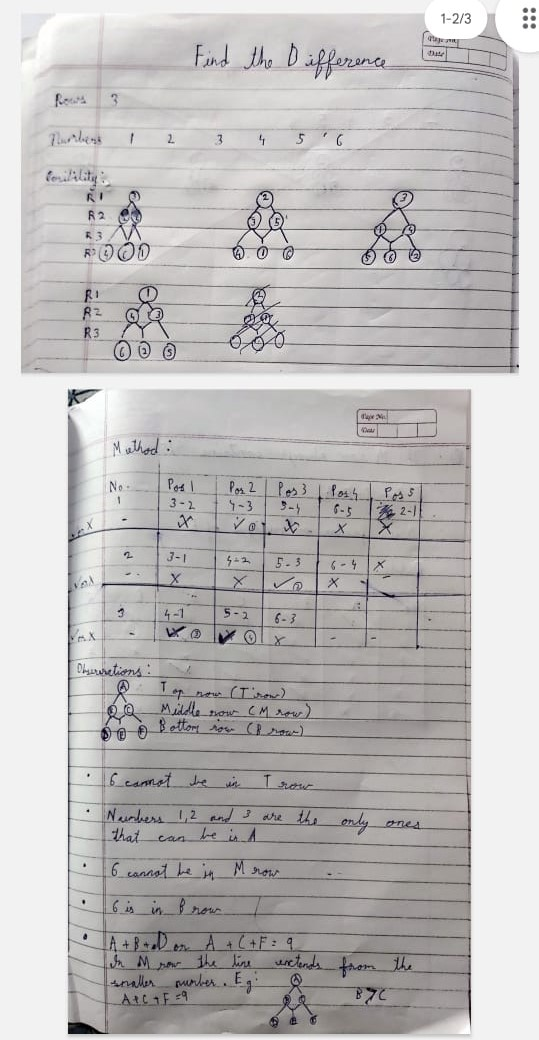 1-2/3
Page No.
Date
Find the Difference
Rows 3
Numbers 1 2 3 4 5 6
R1
R2
R3
2
3 5
4 1 6
3
1 5
6 2
R1 1
R2 4 3
R3 6 2 5
Page No.
Date
Method :
No. Pos 1 Pos 2 Pos 3 Pos 4 Pos 5
1 3-2 4-3 5-4 6-5 2-1
- X ✓ X X X
2 3-1 4-2 5-3 6-4 X
X X ✓ X
3 4-1 5-2 6-3
✓ or X - ✓ ✓ X - -
Observations :
A
B C
D E F
Top row (T row)
Middle row (M row)
Bottom row (B row)
• 6 cannot be in T row
• Numbers 1,2 and 3 are the only ones
that can be is A
• 6 cannot be in M row
• 6 is in B row
• A+B+D or A+C+F = 9
In M row the line extends from the
smaller number. Eg:
A+C+F=9
A
B C
D E F
B>C